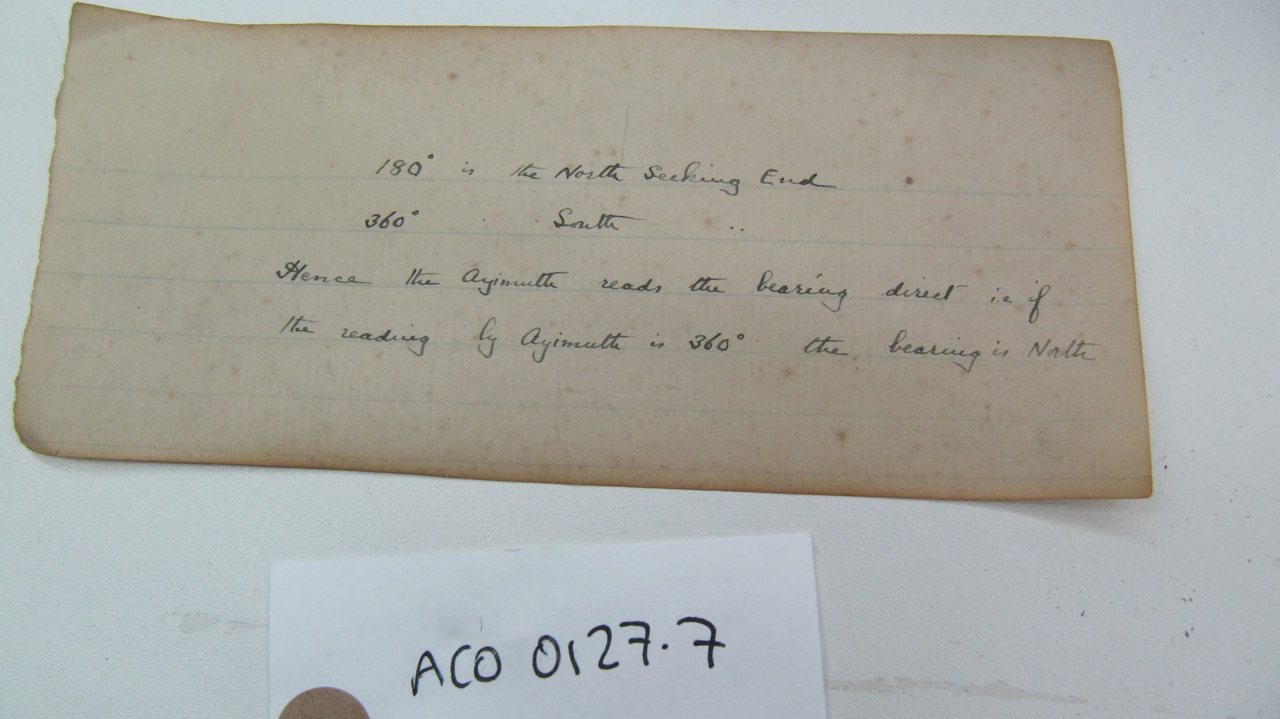 180° is the North Seeking End
360° . . South ..
Hence the Azimuth reads the bearing direct i.e if
the reading by Azimuth is 360° the bearing is North
ACO 0127.7